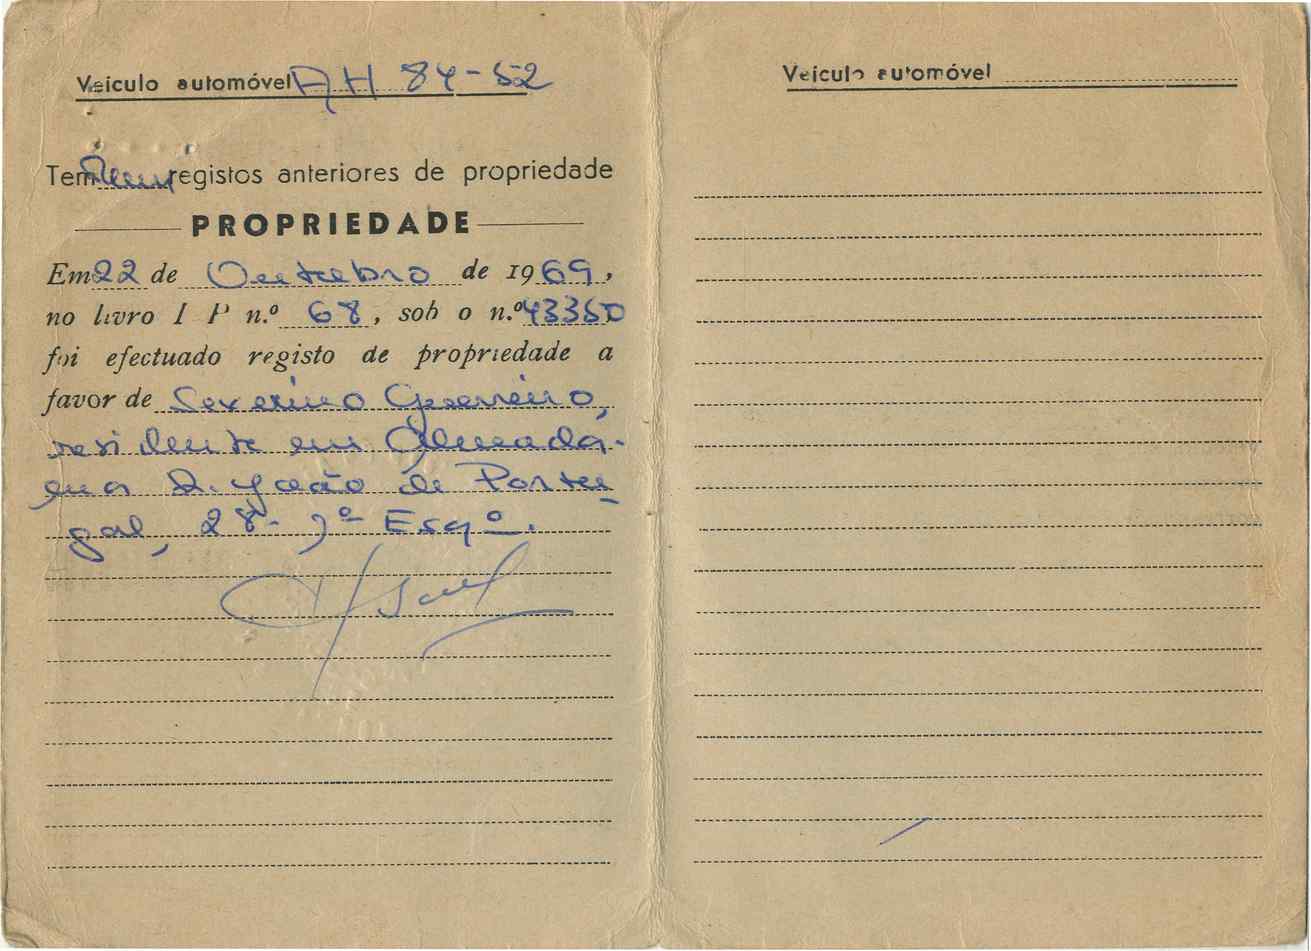 Veículo automóvel AH 84-52
Tem registos anteriores de propriedade
PROPRIEDADE
Em 22 de Outubro de 1969,
no livro I P n.º 68, sob o n.º 43350
foi efectuado registo de propriedade a
favor de Severino Guerreiro,
residente em Almada
na R. João de Portu-
gal, 28- Esqº.
Veículo automóvel